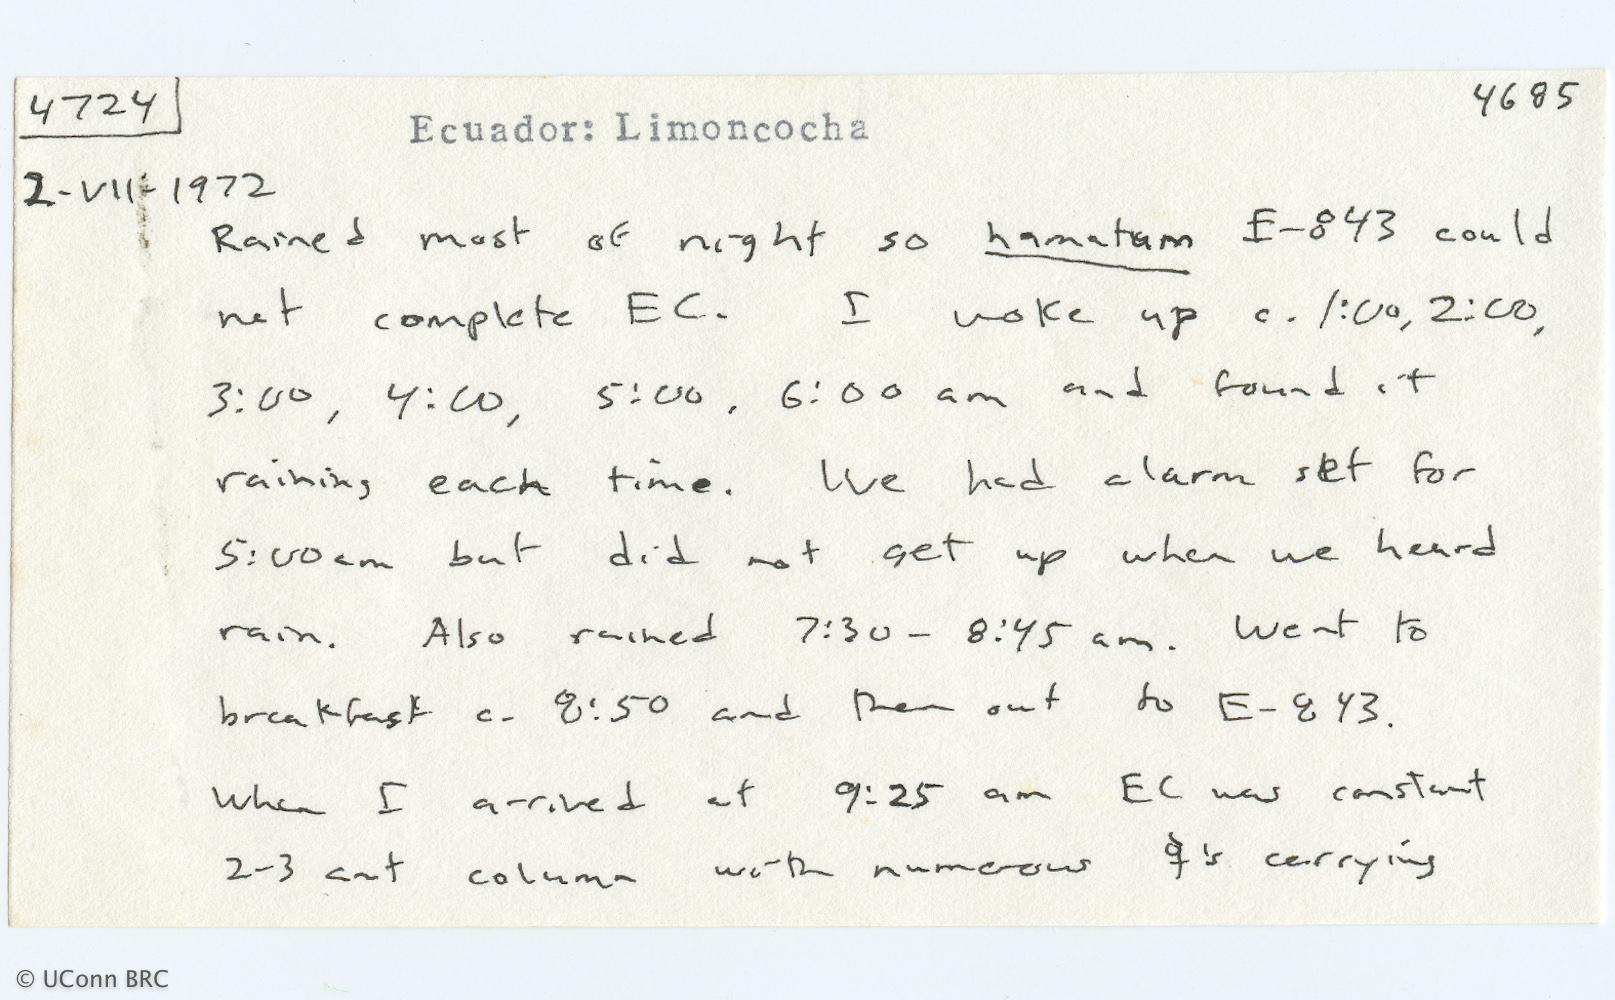 4724
4685
Ecuador: Limoncocha
2-VII-1972
Rained most of night so hamatum E-843 could
not complete EC. I woke up c. 1:00, 2:00,
3:00, 4:00, 5:00, 6:00 am and found it
raining each time. We had alarm set for
5:00 am but did not get up when we heard
rain. Also rained 7:30 - 8:45 am. Went to
breakfast c. 8:50 and then out to E-843.
When I arrived at 9:25 am EC was constant
2-3 ant column with numerous ☿'s carrying
© UConn BRC